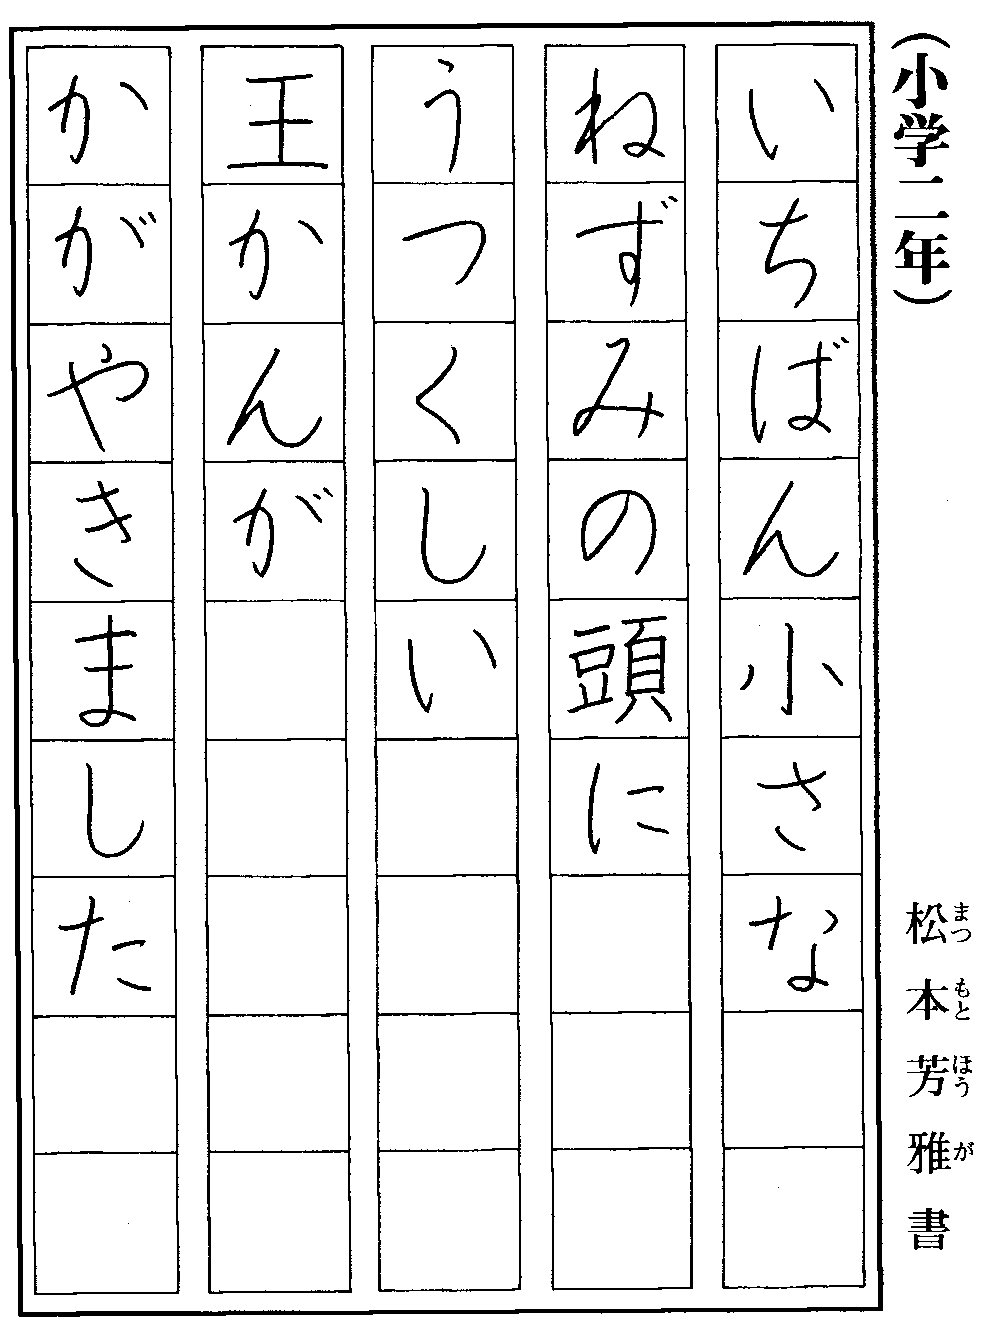 (小学二年)
松本芳雅書
まつもとほうが
いちばん小さな
ねずみの頭に
うつくしい
王かんが
かがやきました